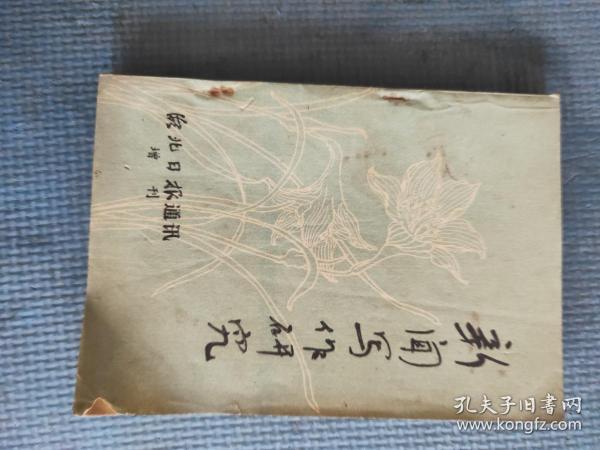 新闻写作研究
北日报通讯
增刊
孔夫子旧书网
www.kongfz.com